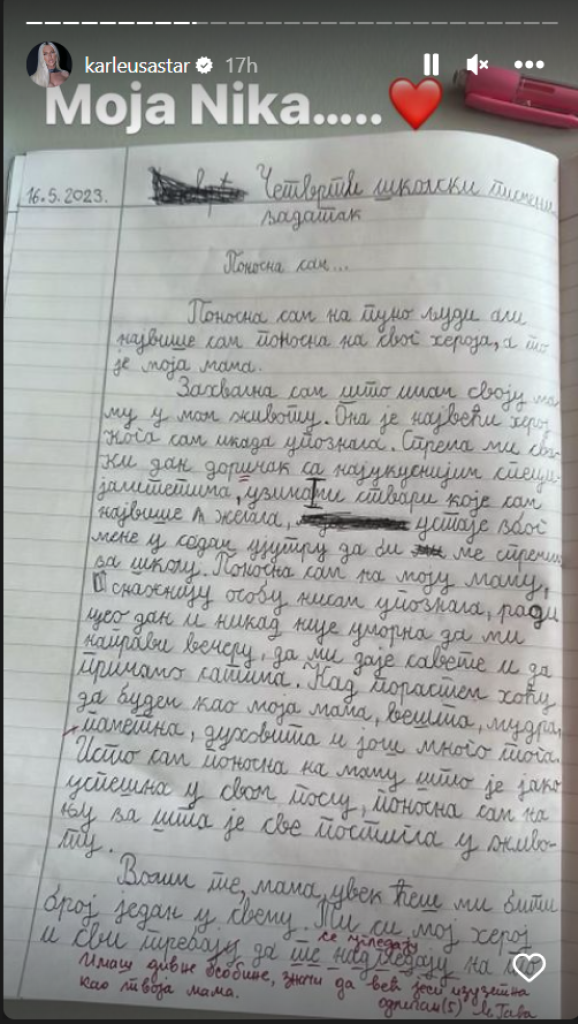 karleusastar 17h
Моја Nika..... ❤️
16.5.2023. Четврти школски писмени
задатак
Поносна сам...
Поносна сам на пуно људи али
највише сам поносна на свог хероја, а то
је моја мама.
Захвална сам што имам своју ма-
му у мом животу. Она је највећи херој
кога сам икада упознала. Спрема ми сва-
ки дан доричак са најукуснијим специ-
јалитетима, узима ми ствари које сам
највише желела, устаје због
мене у седам ујутру да би ме спреми
за школу. Поносна сам на моју маму,
снажнију особу нисам упознала, ради
цео дан и никад није уморна да ми
направи вечеру, да ми даје савете и да
причамо сатима. Кад порастем хоћу
да будем као моја мама, вешта, мудра,
паметна, духовита и још много тога.
Исто сам поносна на маму што је јако
успешна у свом послу, поносна сам на
њу за шта је све постигла у живо-
ту.
Волим те, мама, увек ћеш ми бити
број један у свету. Ти си мој херој
се угледају
и сви требају да те надгледају на то
Имаш дивне особине, знам да већ јеси изузетна
као твоја мама. одличан (5)